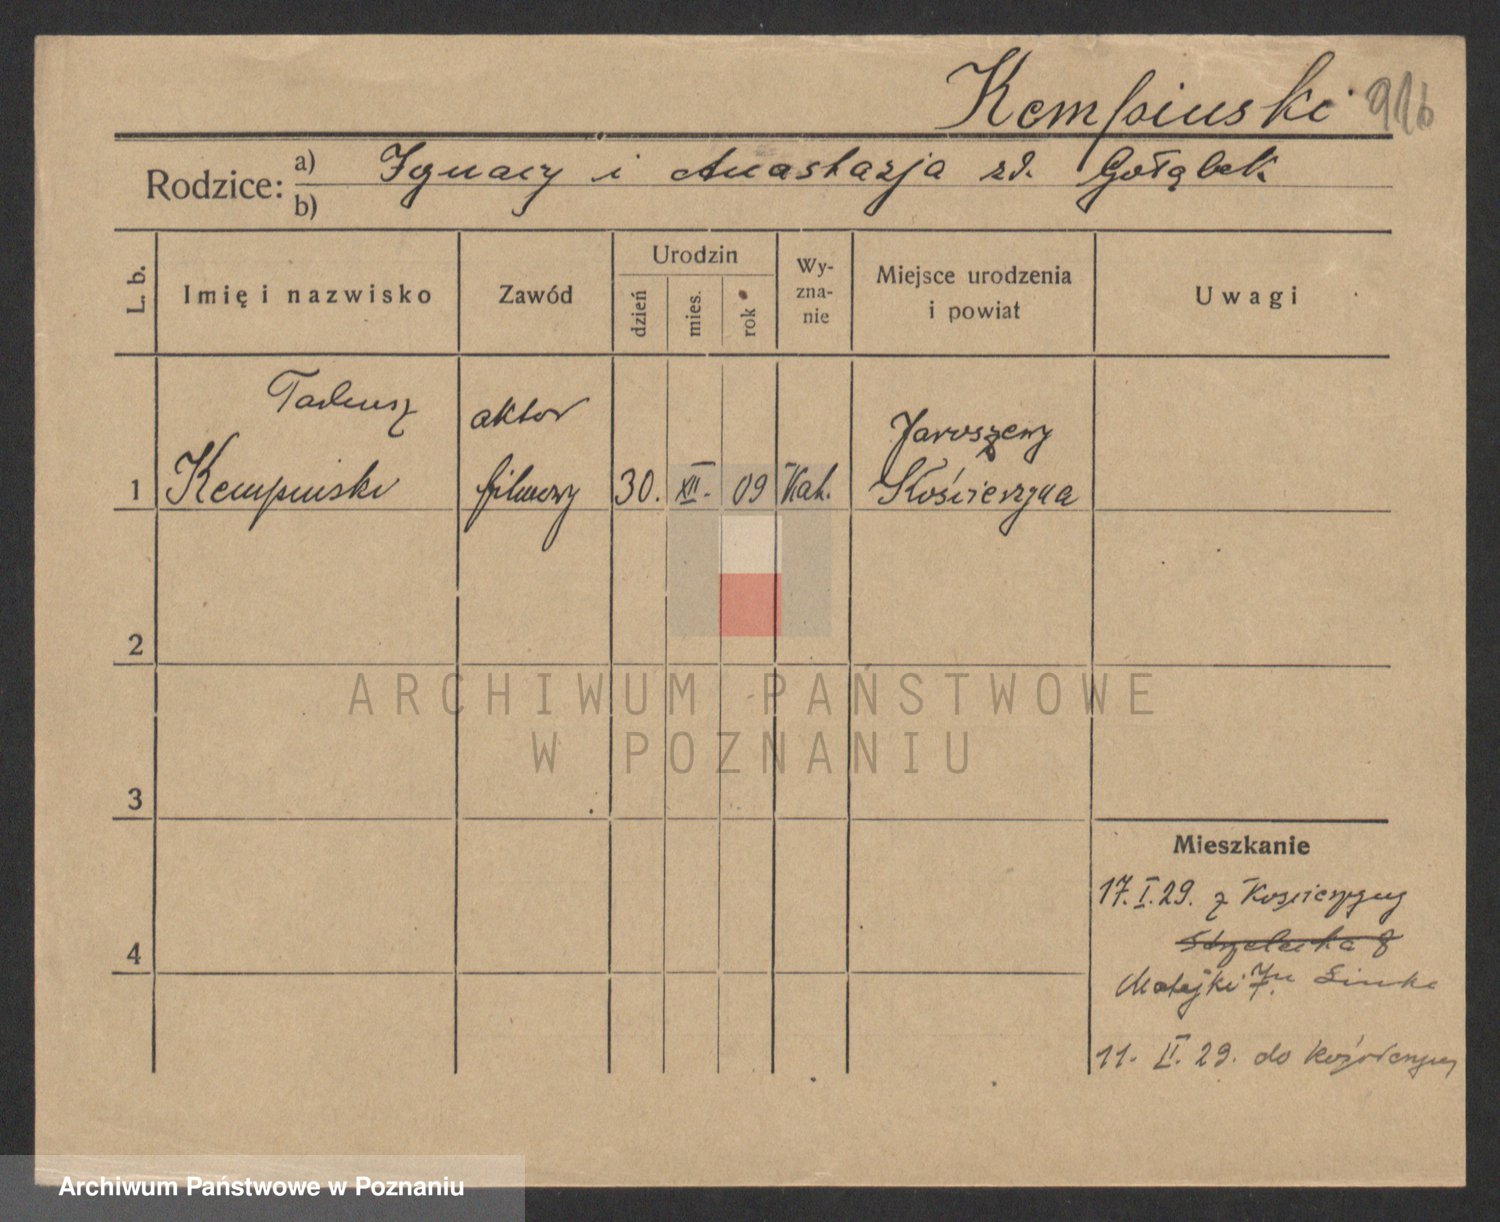 Kempinski 916
Rodzice: a) Ignacy i Anastazja zd. Gołąbek
b)
L. b. Imię i nazwisko Zawód Urodzin dzień mies. rok Wy-zna-nie Miejsce urodzenia i powiat Uwagi
Tadeusz aktor Jaroszewy
1 Kempinski filmowy 30. XII. 09 Kat. Kościerzyna
2
ARCHIWUM PAŃSTWOWE
W POZNANIU
3
Mieszkanie
17.I.29. z Kościerzyny
Strzelecka 8
4
Matejki
11. II. 29. do Kościerzyny
Archiwum Państwowe w Poznaniu